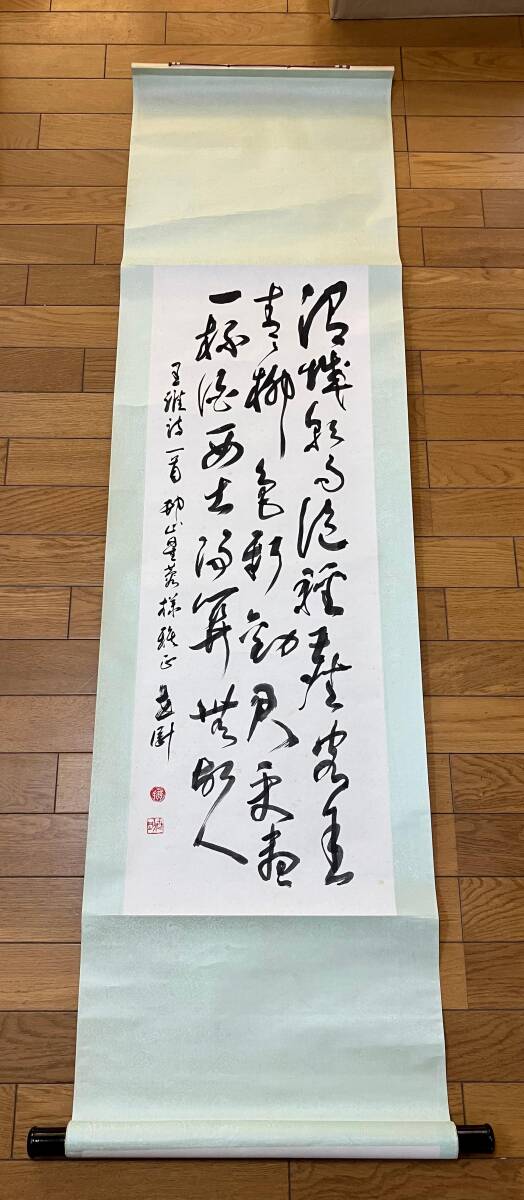 渭城朝雨浥輕塵客舍
青々柳色新勸君更盡
一杯酒西出陽關無故人
王維詩一首 様雅正